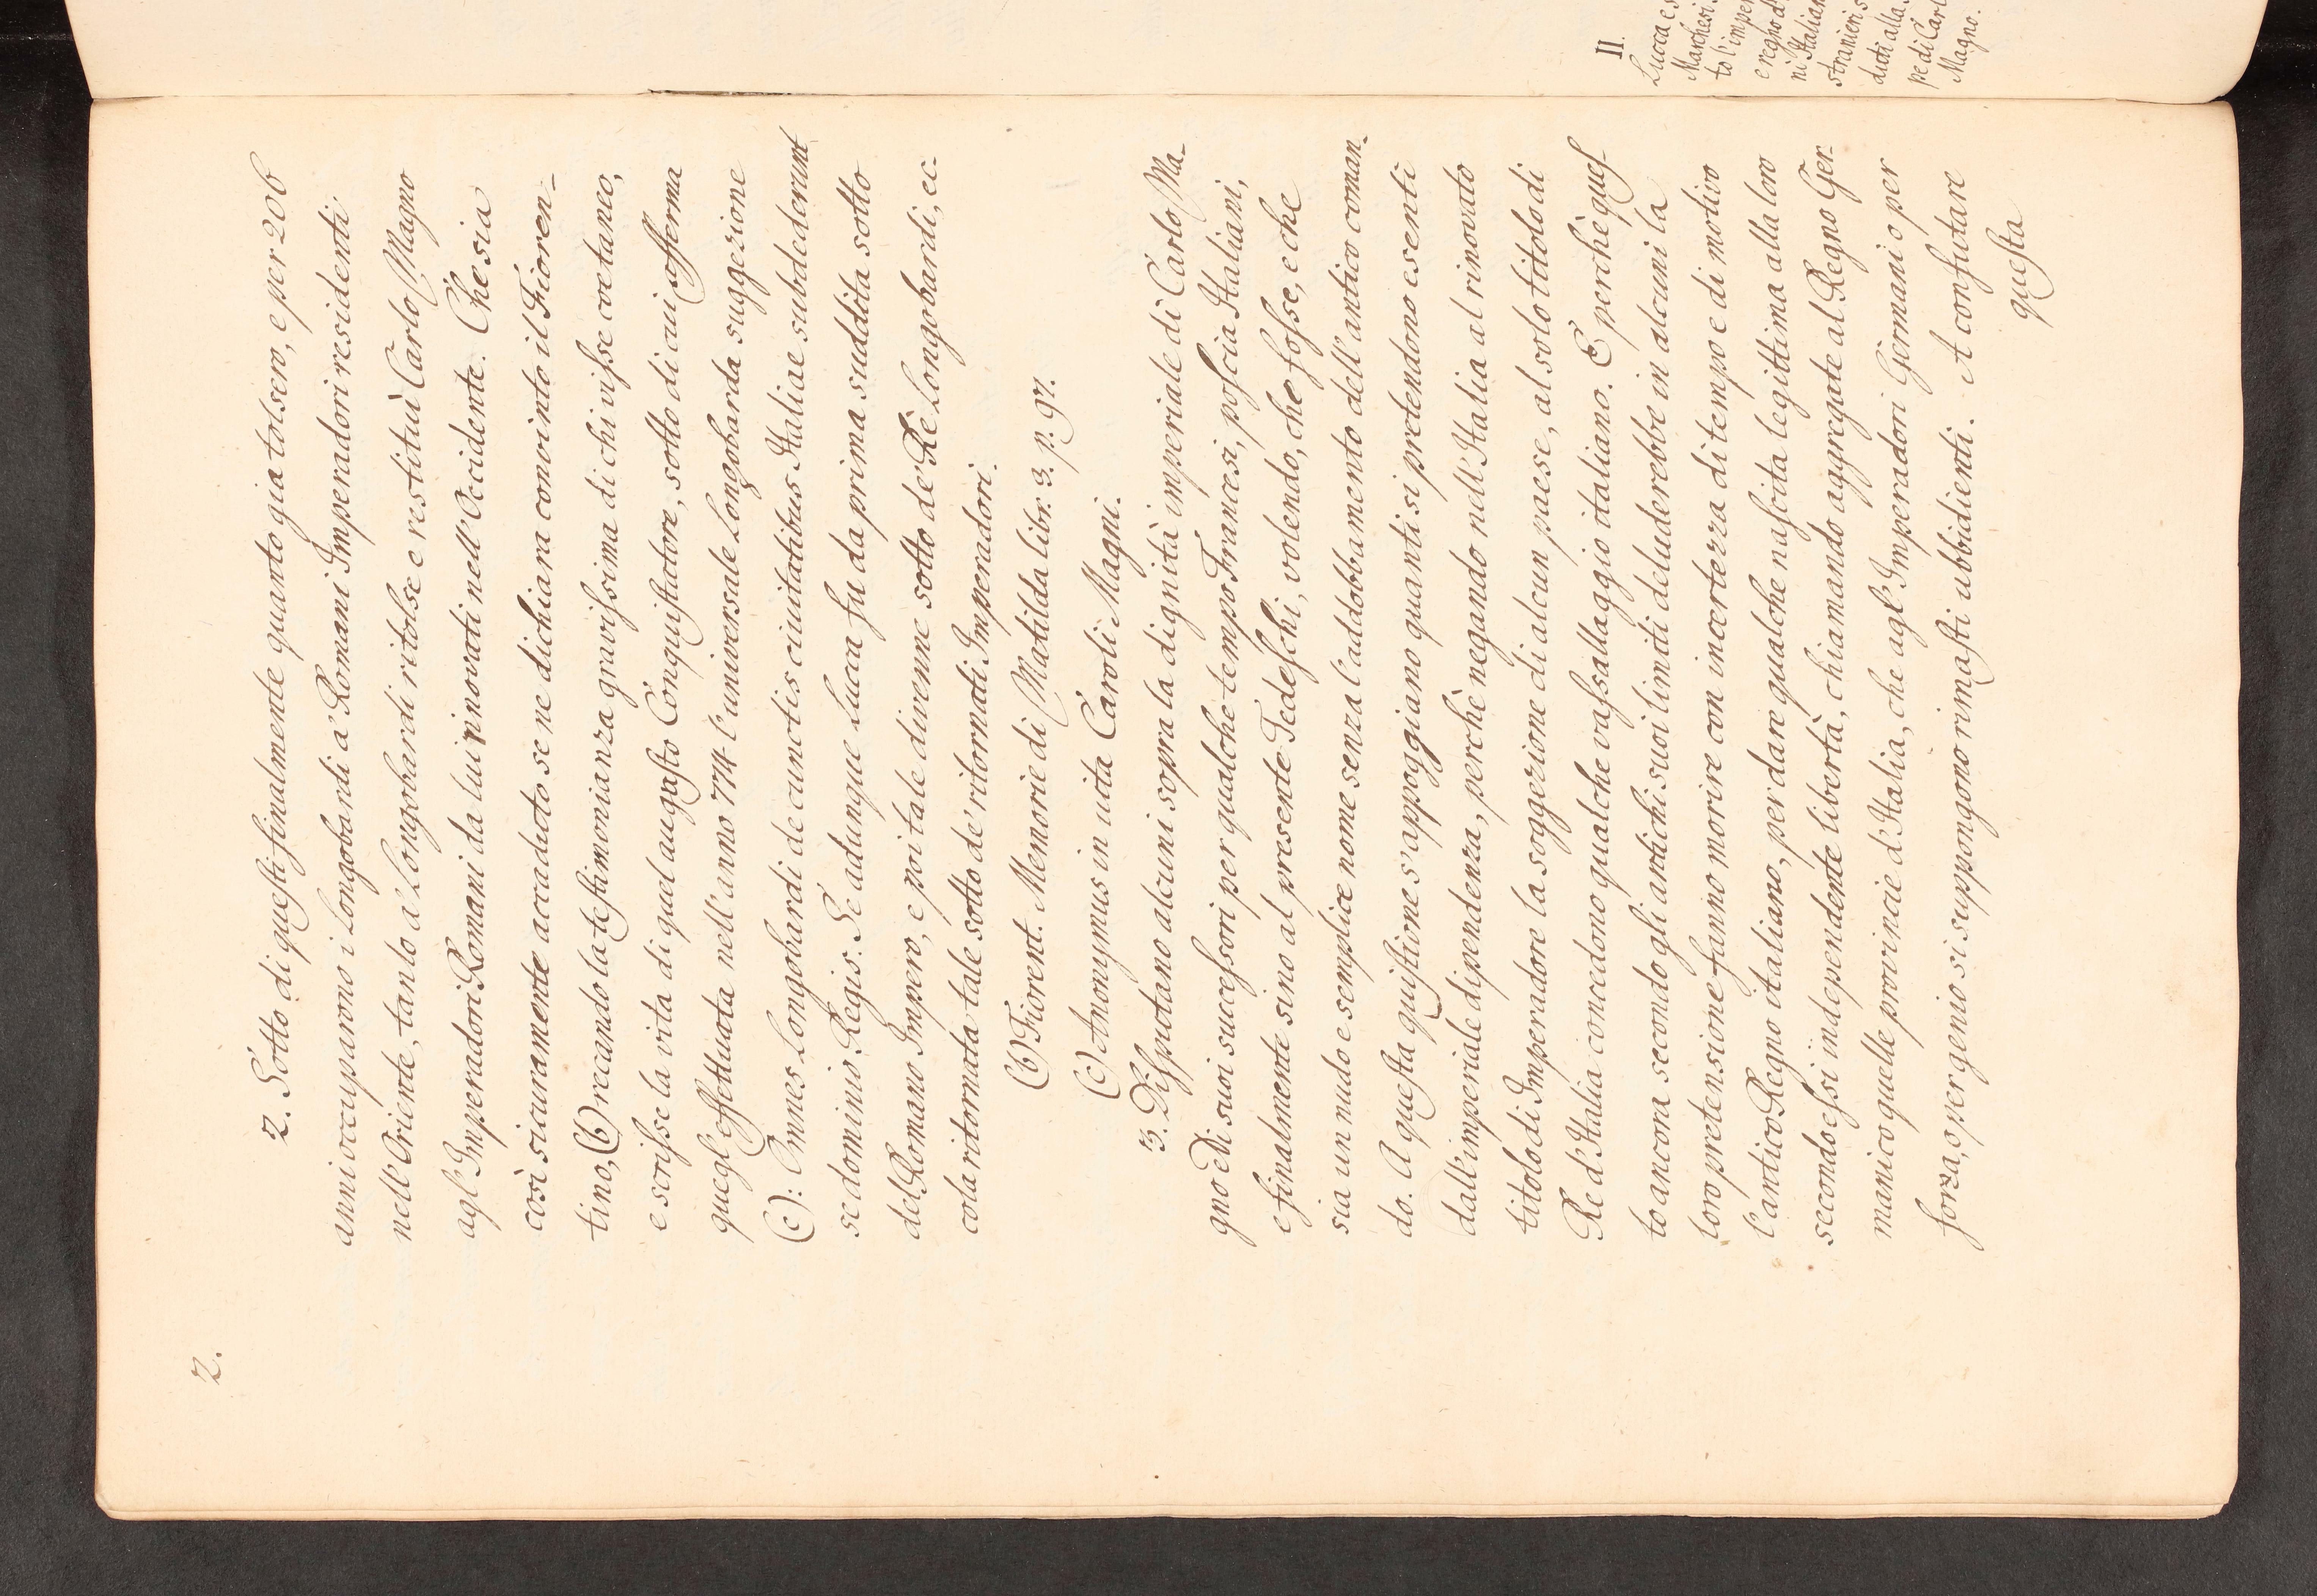 2.
2. Sotto di questi finalmente quanto gia tolsero, e per 206
anni occuparono i Longobardi a' Romani Imperadori residenti
nell'Oriente, tanto a' Longobardi ritolse e restituì Carlo Magno
agl'Imperadori Romani da lui rinovati nell'Occidente. Che sia
così sicuramente accaduto se ne dichiara convinto il Fioren-
tino, (b) recando la testimonianza gravissima di chi visse coetaneo,
e scrisse la vita di quel augusto Conquistatore, sotto di cui afferma
quegl'effettuata nell'anno 774 l'universale Longobarda suggezione
(c): Omnes Longobardi de cunctis ciuitatibus Italiae subdederunt
se dominio Regis. Se adunque Lucca fu da prima suddita sotto
del Romano Impero, e poi tale divenne sotto de' Rè Longobardi, ec-
cola ritornata tale sotto de' ritornati Imperadori.
(b) Fiorent. Memorie di Matilda libr. 3. p. 97.
(c) Anonymus in uita Caroli Magni.
3. Disputano alcuni sopra la dignità imperiale di Carlo Ma-
gno e Di suoi successori per qualche tempo Francesi, poscia Italiani,
e finalmente sino al presente Tedeschi, volendo, che fosse, e che
sia un nudo e semplice nome senza l'addobbamento dell'antico coman-
do. A questa quistione s'appoggiano quanti si pretendono esenti
dall'imperiale dipendenza, perchè negando nell'Italia al rinovato
titolo di Imperadore la soggezione di alcun paese, al solo titolo di
Re d'Italia concedono qualche vassallaggio italiano. E perchè ques-
to ancora secondo gli antichi suoi limiti deluderebbe in alcuni la
loro pretensione fanno morire con incertezza di tempo e di motivo
l'antico Regno italiano, per dare qualche nascita legittima alla loro
secondo essi independente libertà, chiamando aggregate al Regno Ger-
manico quelle provincie d'Italia, che agl'Imperadori Girmani o per
forza, o per genio si suppongono rimasti ubbidienti. A confutare
questa
II.
Lucca e s
Marchesi
to l'imper
e regno d
ni Italian
stranieri s
diti alla
pe di Carl
Magno.